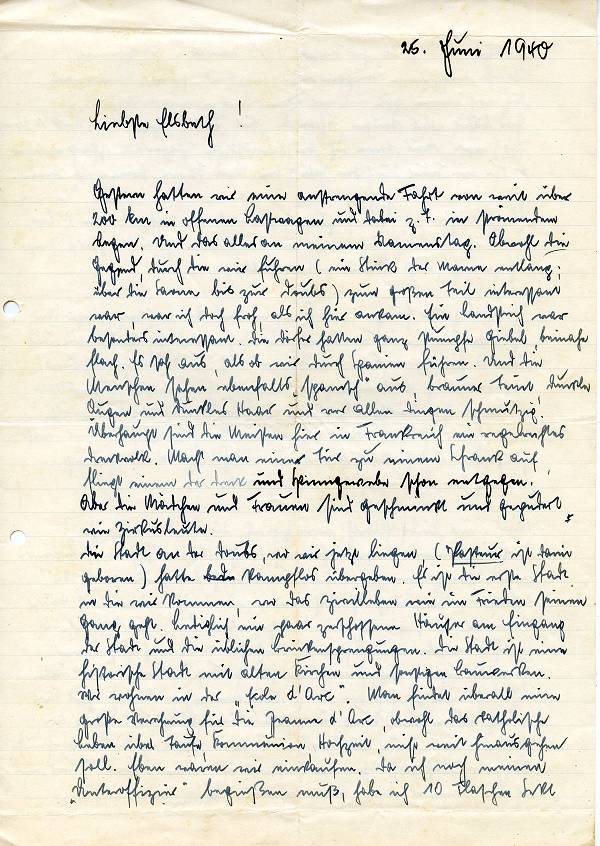 25. Juni 1940
Liebste Elsbeth!
Gestern hatten wir eine anstrengende Fahrt von weit über
200 km in offenen Lastwagen und dabei z. T. in strömendem
Regen. Und das alles an meinem Namenstag. Obwohl die
Gegend, durch die wir fuhren (ein Stück der Marne entlang,
über die Saone bis zur Doubs) zum großen Teil interessant
war, war ich doch froh, als ich hier ankam. Ein Landstrich war
besonders interessant. Die Dörfer hatten ganz stumpfe Giebel, beinahe
flach. Es sah aus, als ob wir durch Spanien führen. Und die
Menschen sahen ebenfalls "spanisch" aus, brauner Teint, dunkle
Augen und dunkles Haar und vor allen Dingen schmutzig.
Überhaupt sind die Meisten hier in Frankreich ein regelrechtes
Dreckvolk. Macht man eine Tür zu einem Schrank auf
fliegt einem der Dreck und Spinngewebe schon entgegen.
Aber die Mädchen und Frauen sind geschminkt und gepudert
wie Zirkusleute.
Die Stadt an der Doubs, wo wir jetzt liegen (Pasteur ist darin
geboren) hatte kampflos übergeben. Es ist die erste Stadt
in die wir kommen, wo das Zivilleben wie im Frieden seinen
Gang geht. Lediglich ein paar zerschossene Häuser am Eingang
der Stadt und die üblichen Brückensprengungen. Die Stadt ist eine
historische Stadt mit alten Kirchen und sonstigen Bauwerken.
Wir wohnen in der "Ecole d'Arc". Man findet überall eine
große Verehrung für die Jeanne d'Arc, obwohl das katholische
Leben über Taufe, Kommunion, Hochzeit, nicht weit hinausgehen
soll. Eben waren wir einkaufen. Da ich noch meinen
"Unteroffizier" begießen muß, habe ich 10 Flaschen Sekt